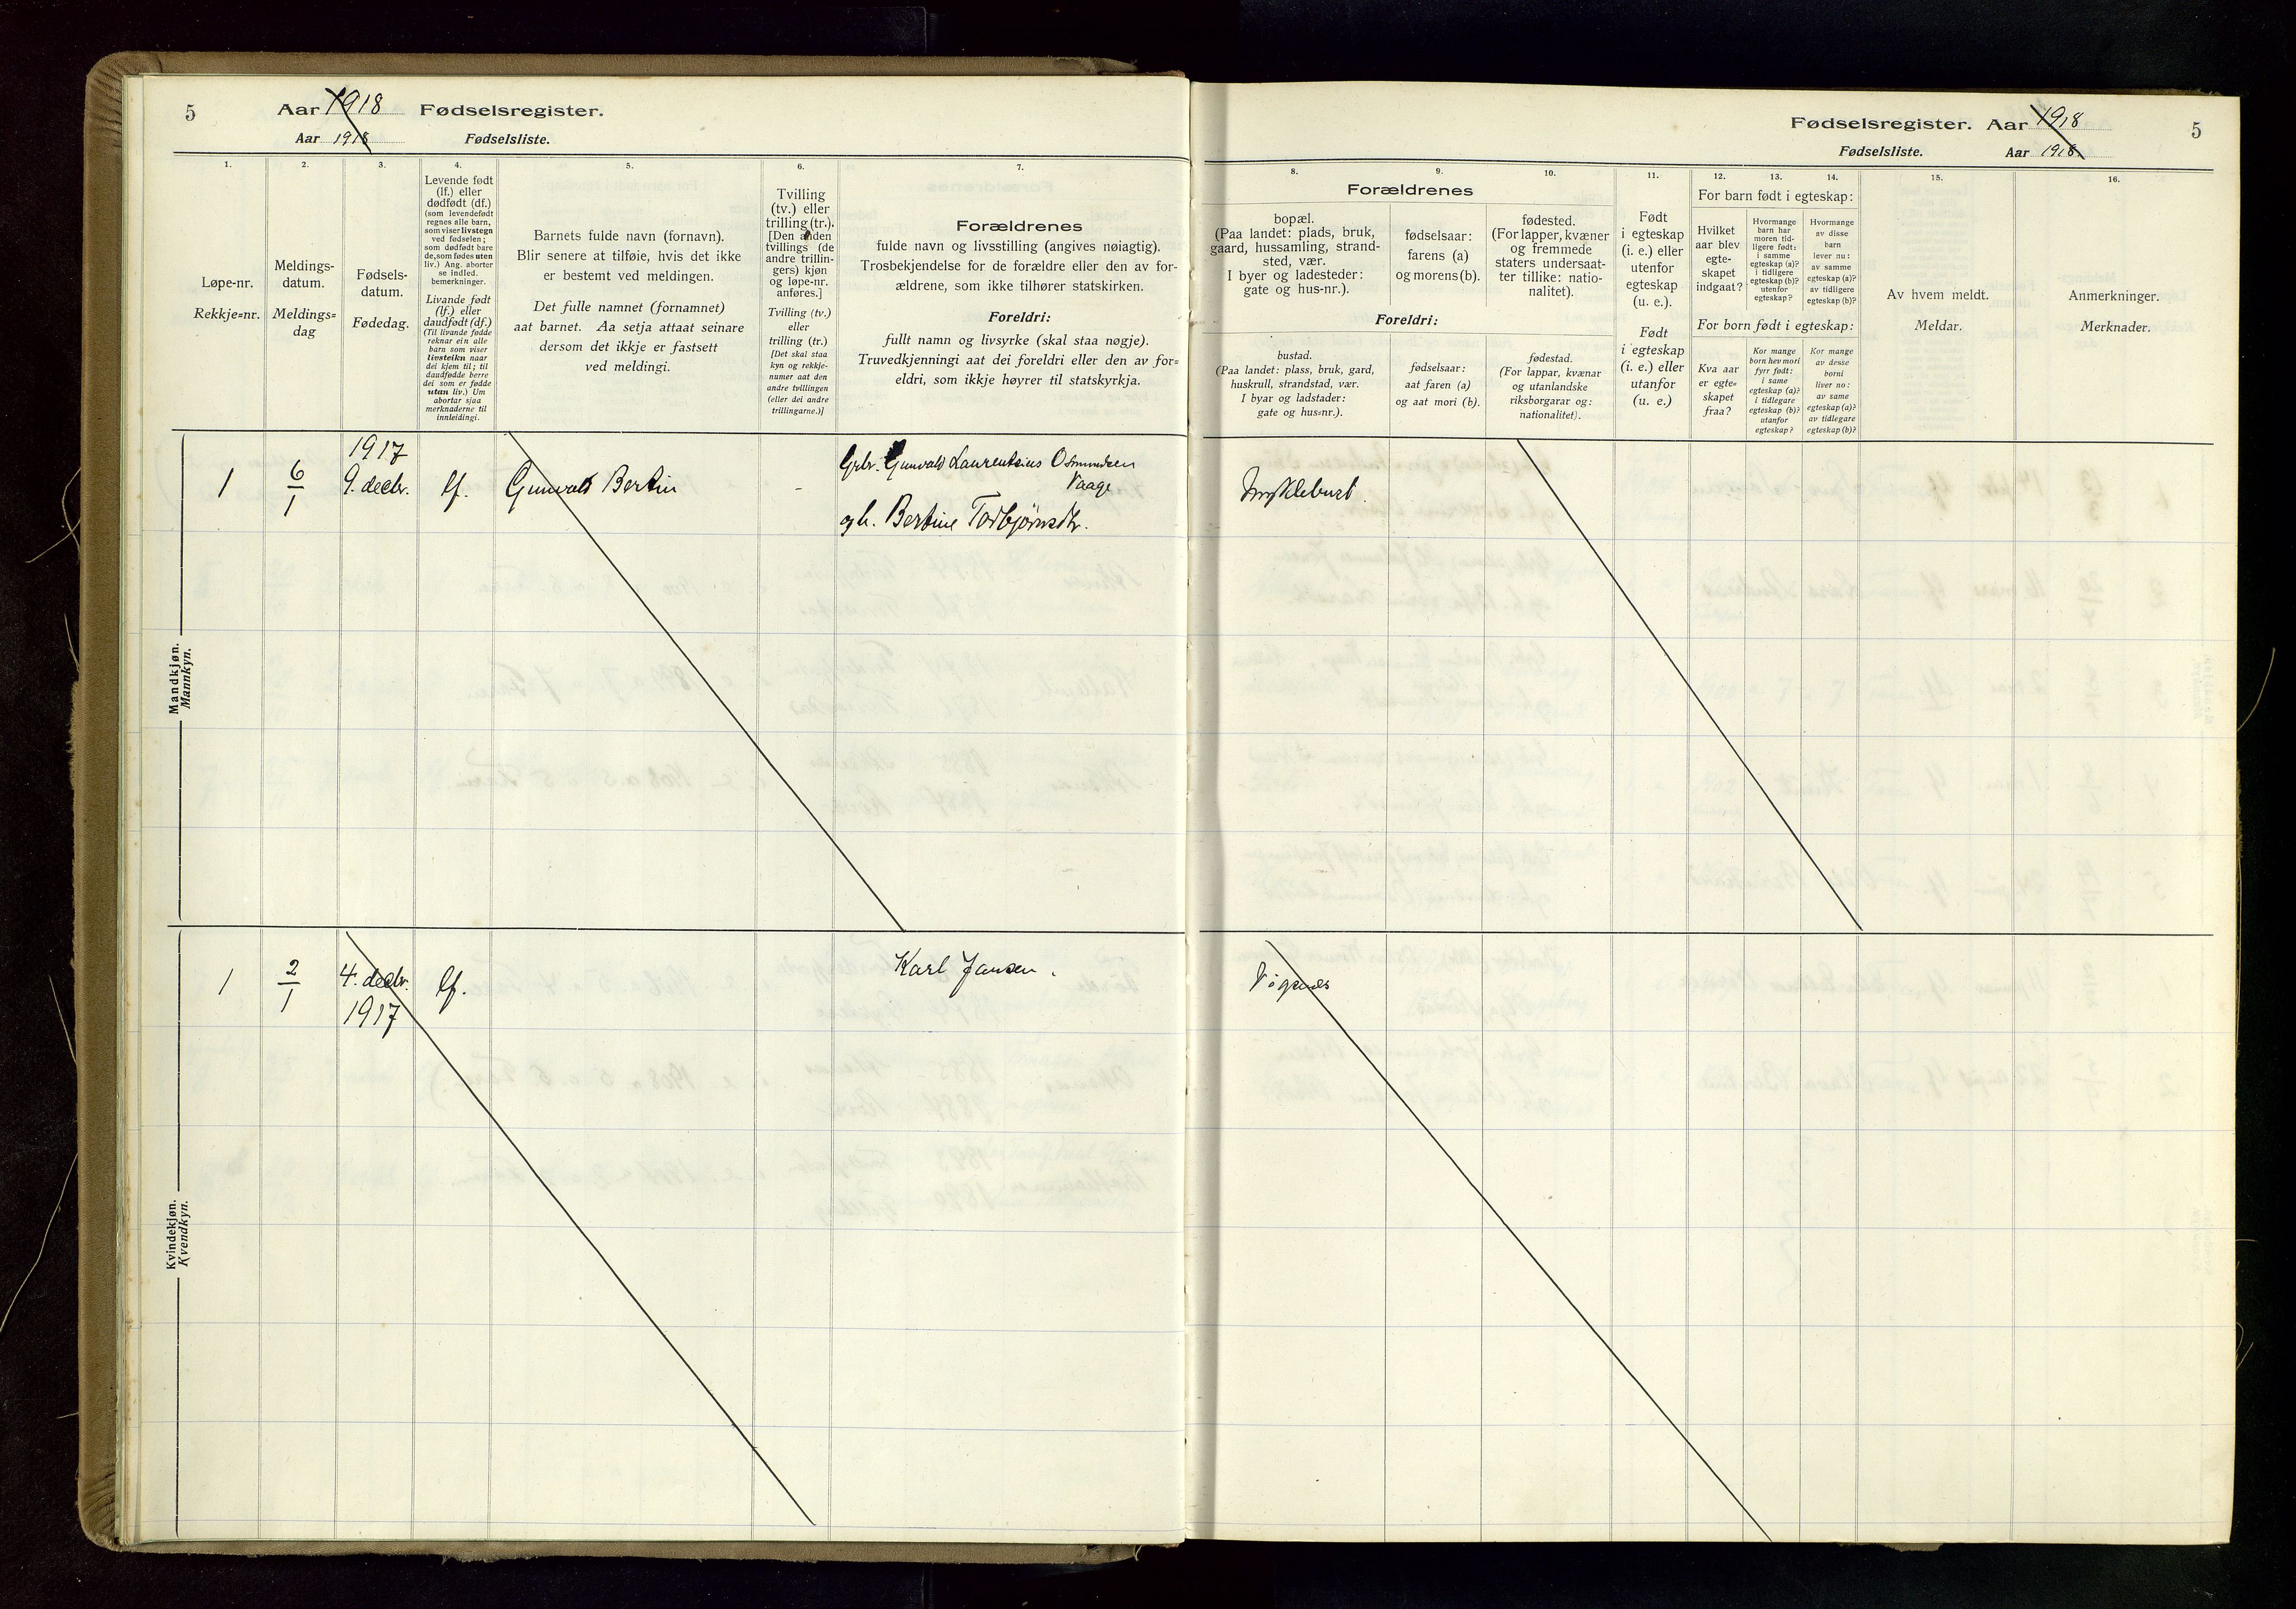 5
Aar 1918 Fødselsregister.
Aar 1918 Fødselsliste.
1.
2.
3.
4.
5.
6.
7.
Løpe-nr.
Rekkje=nr.
Meldings-
datum.
Meldings=
dag
Fødsels-
datum.
Fødedag.
Levende født
(lf.) eller
dødfødt (df.)
(som levendefødt
regnes alle barn,
som viser livstegn
ved fødselen;
som dødfødt bare
de, som fødes uten
liv.) Ang. aborter
se indled.
bemerkninger.
Livande født
(lf.) eller
daudfødt (df.)
(Til livande fødde
reknar ein alle
barn som viser
livsteikn naar
dei kjem til; til
daudfødde berre
dei som er fødde
utan liv.) Um
abortar sjaa
merknaderne til
innleidingi.
Barnets fulde navn (fornavn).
Blir senere at tilføie, hvis det ikke
er bestemt ved meldingen.
Det fulle namnet (fornamnet)
aat barnet. Aa setja attaat seinare
dersom det ikkje er fastsett
ved meldingi.
Tvilling
(tv.) eller
trilling (tr.).
[Den anden
tvillings (de
andre trillin-
gers) kjøn
og løpe-nr.
anføres.]
Tvilling (tv.)
eller
trilling (tr.)
[Det skal staa
kyn og rekkje-
numer aat den
andre tvillingen
(eller dei andre
trillingarne.)]
Forældrenes
fulde navn og livsstilling (angives nøiagtig).
Trosbekjendelse for de forældre eller den av for-
ældrene, som ikke tilhører statskirken.
Foreldri:
fullt namn og livsyrke (skal staa nøgje).
Truvedkjenningi aat dei foreldri eller den av for=
eldri, som ikkje høyrer til statskyrkja.
Mandkjøn.
Mannkyn.
1
6
1
1917
9. decbr.
lf.
Gunvald Bertin
-
Grbr. Gunvald Laurentzius Osmundsen
Vaage
og h. Bertine Torbjørnsdtr.
Kvindekjøn.
Kvendkyn.
1
2
1
4. decbr.
1917
lf.
Karl Jansen.
Fødselsregister. Aar 1918
Fødselsliste. Aar 1918.
5
8.
9.
10.
11.
12.
13.
14.
15.
16.
Forældrenes
bopæl.
(Paa landet: plads, bruk,
gaard, hussamling, strand-
sted, vær.
I byer og ladesteder:
gate og hus-nr.).
fødselsaar:
farens (a)
og morens (b).
fødested.
(For lapper, kvæner
og fremmede
staters undersaat-
ter tillike: natio-
nalitet).
Foreldri:
bustad.
(Paa landet: plass, bruk, gard,
huskrull, strandstad, vær.
I byar og ladstader:
gate og hus=nr.).
fødselsaar:
aat faren (a)
og aat mori (b).
fødestad.
(For lappar, kvænar
og utanlandske
riksborgarar og:
nationalitet).
Født
i egteskap
(i. e.) eller
utenfor
egteskap
(u. e.).
Født
i egteskap
(i. e.) eller
utanfor
(u. e.)
For barn født i egteskap:
Hvilket
aar blev
egte-
skapet
indgaat?
Hvormange
barn har
moren tid-
ligere født:
i samme
egteskap (a)?
i tidligere
egteskap (b)?
utenfor
egteskap?
Hvormange
av disse
barn
lever nu:
av samme
egteskap (a)?
av tidligere
egteskap (b)?
For born født i egteskap:
Kva aar
er egte=
skapet
fraa?
Kor mange
born hev mori
fyrr født:
i same
egteskap (a)?
i tidlegare
egteskap (b)?
utanfor
egteskap?
Kor mange
av desse
borni
liver no:
av same
egteskap (a)?
av tidlegare
egteskap (b)?
Av hvem meldt.
Meldar.
Anmerkninger.
Merknader.
Myklebust.
Vignes